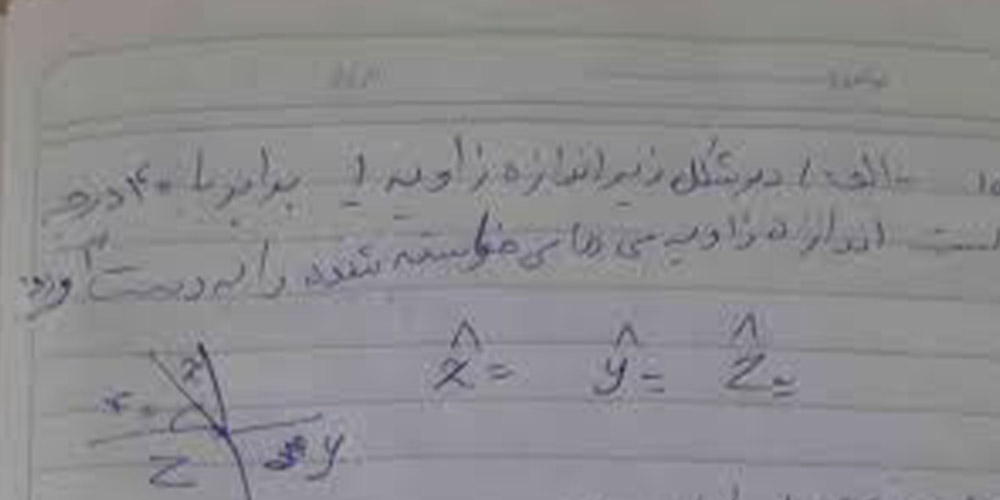 الف) در شکل زیر اندازه زاویه 1 برابر با ۴۰ درجه
است اندازه زاویه ی های خواسته شده را به دست آورید
x̂ = ŷ = ẑ =
x
۴۰
z y